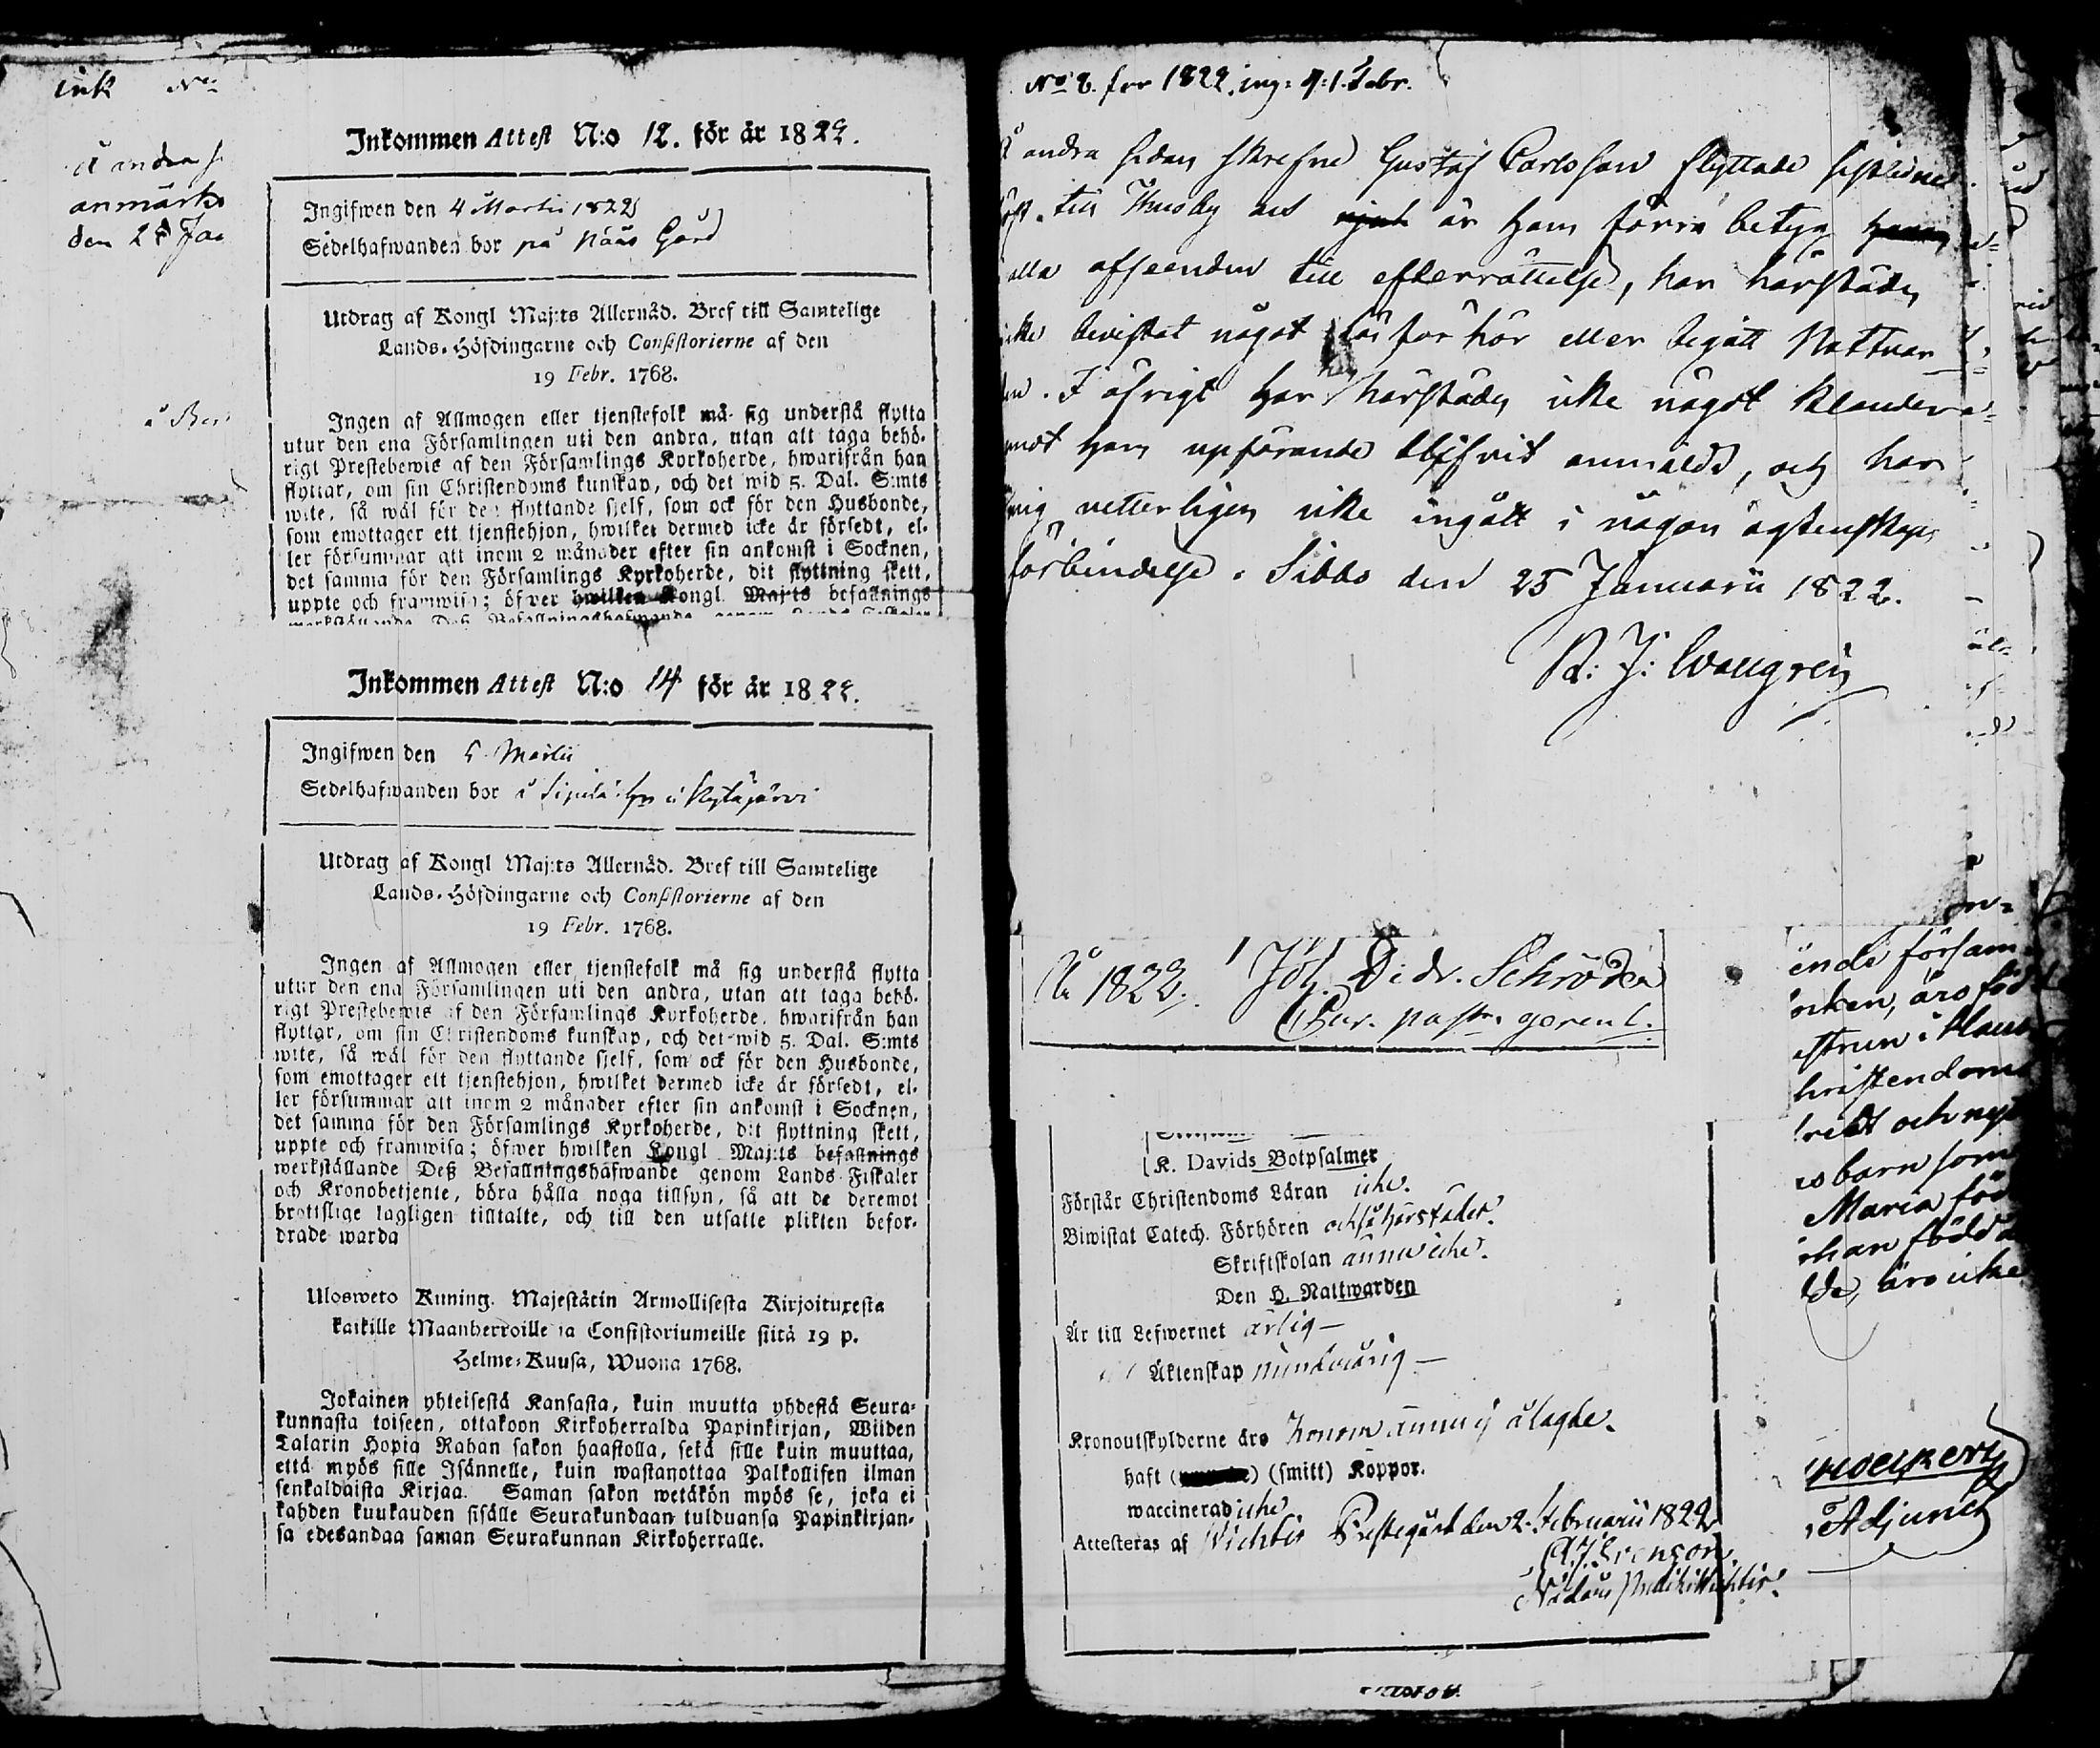 ink No
Inkommen Attest N:o 12. för år 1822.
å andra s
anmärk
den 28 Jan
Ingifwen den 4 Martii 1822
Sedelhafwanden bor på Nääs Gård
Utdrag af Kongl Maj:ts Allernåd. Bref till Samtelige
Lands-Höfdingarne och Consistorierne af den
19 Febr. 1768.
Ingen af Allmogen eller tjenstefolk må sig understå flytta
utur den ena Församlingen uti den andra, utan att taga behö-
rigt Prestebewis af den Församlings Kyrkoherde, hwarifrån han
flyttar, om sin Christendoms kunskap, och det wid 5. Dal. S:mts
wite, så wäl för den flyttande sjelf, som ock för den Husbonde,
som emottager ett tjenstehjon, hwilket dermed icke är försedt, el-
ler försummar att inom 2 månader efter sin ankomst i Socknen,
det samma för den Församlings Kyrkoherde, dit flyttning skett,
uppte och framwisa; öfwer hwilken Kongl. Maj:ts befallnings
Inkommen Attest N:o 14 för år 1822.
Ingifwen den 5 Martii
Sedelhafwanden bor i Sipilä by i Kytäjärvi
Utdrag af Kongl Maj:ts Allernåd. Bref till Samtelige
Lands-Höfdingarne och Consistorierne af den
19 Febr. 1768.
Ingen af Allmogen eller tjenstefolk må sig understå flytta
utur den ena Församlingen uti den andra, utan att taga behö-
rigt Prestebewis af den Församlings Kyrkoherde, hwarifrån han
flyttar, om sin Christendoms kunskap, och det wid 5. Dal. S:mts
wite, så wäl för den flyttande sjelf, som ock för den Husbonde,
som emottager ett tjenstehjon, hwilket dermed icke är försedt, el-
ler försummar att inom 2 månader efter sin ankomst i Socknen,
det samma för den Församlings Kyrkoherde, dit flyttning skett,
uppte och framwisa; öfwer hwilken Kongl Maj:ts befallnings
werkställande Deß Befallningshafwande genom Lands Fiskaler
och Kronobetjente, böra hålla noga tillsyn, så att de deremot
brottslige lagligen tilltalte, och till den utsatte plikten befor-
drade warda
Ulosweto Kuning. Majestätin Armollisesta Kirjoituxesta
kaikille Maanherroille ja Consistoriumeille siitä 19 p.
Helme-Kuusa, Wuona 1768.
Jokainen yhteisestä Kansasta, kuin muutta yhdestä Seura-
kunnasta toiseen, ottakoon Kirkoherralda Papinkirjan, Wiiden
Talarin Hopia Rahan sakon haastolla, sekä sille kuin muuttaa,
että myös sille Isännelle, kuin wastanottaa Palkollisen ilman
senkaldaista Kirjaa. Saman sakon wetäkön myös se, joka ei
kahden kuukauden sisälle Seurakundaan tulduansa Papinkirjan-
sa edesandaa saman Seurakunnan Kirkoherralle.
No 8. for 1822. ing: d: 1. Febr.
å andra sidan skrefne Gustaf Carlsson flyttade sistledne
höst. till Thusby och är hans förra betyg
alla afseenden till efterrättelse, har härstädes
icke bevistat något Läsförhör eller begått Nattvar
den. I öfrigt har härstädes icke något klander
mot hans uppförande blifvit anmäldt, och har
mig vetterligen icke ingått i någon ägtenskaps
förbindelse. Sibbo den 25 Januarii 1822.
År 1822. Joh. Didr. Schröder
Cur. past. gerens.
K. Davids Botpsalmer
Förstår Christendoms Läran icke.
Biwistat Catech. Förhören också härstädes.
Skriftskolan ännu icke.
Den H. Nattwarden
Är till Lefwernet ärlig —
Äktenskap minderårig —
Kronoutskylderne äro honom ännu ej ålagde.
haft (smitt) Koppor.
waccinerad icke
Attesteras af Wichtis Prestegård den 2. Februarii 1822
ende försam
ocken, äro föd
hristendoms
redt och nyt
s barn som
Maria föd
ohan född d
de, äro icke
Adjunct